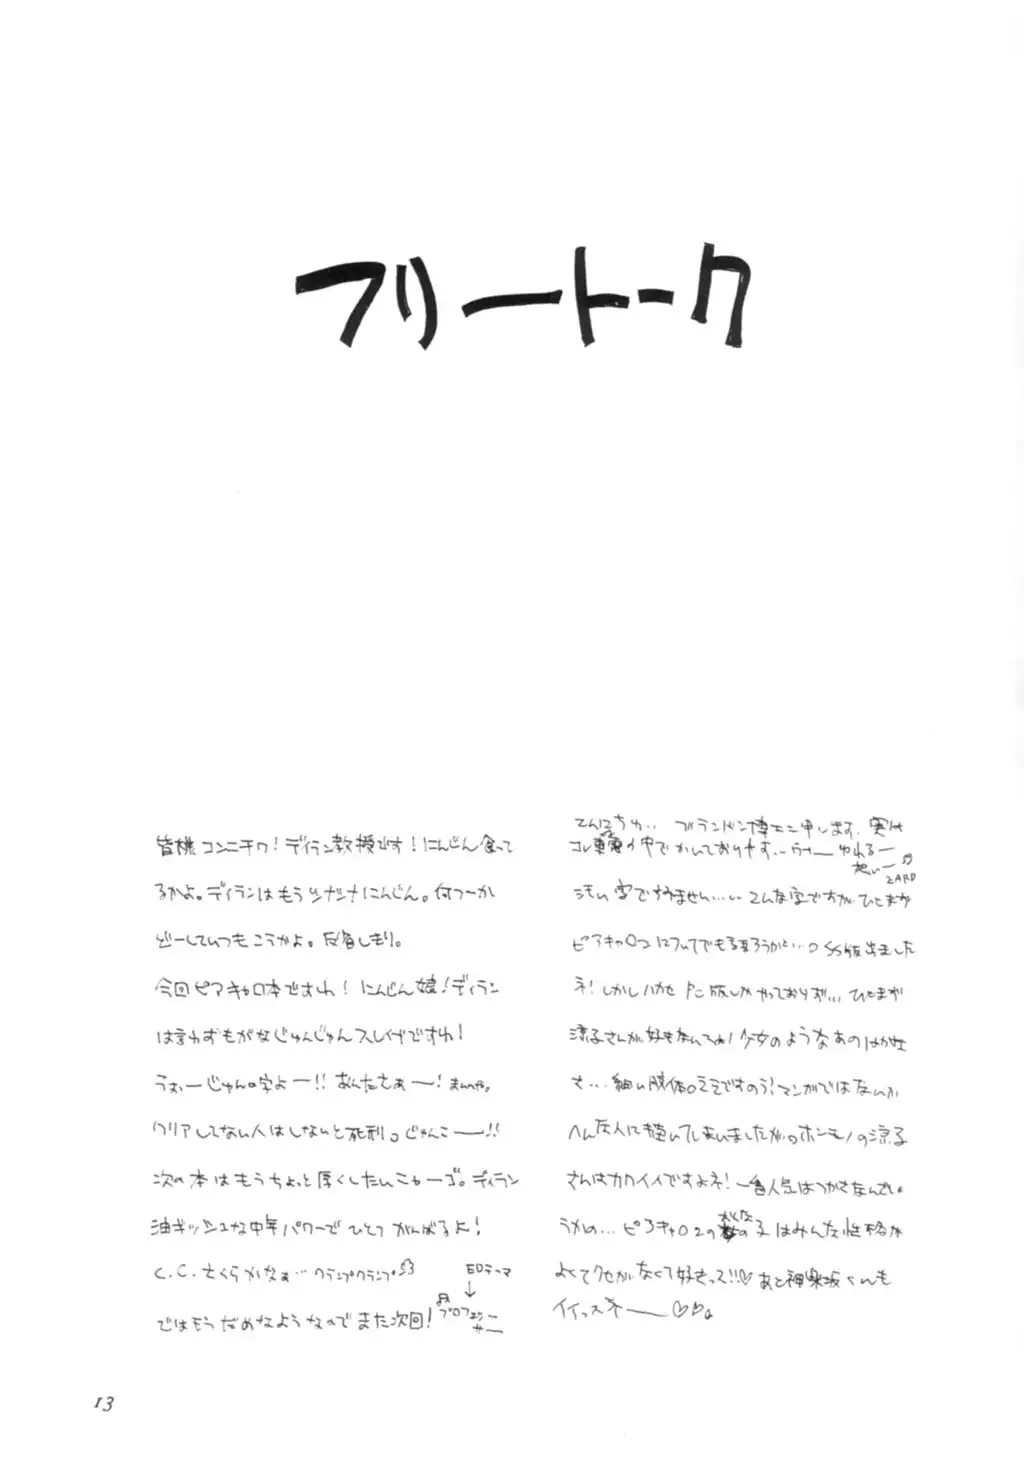 フリートーク
皆様コンニチワ!ディラン教授です!にんじん食って
るかよ。ディランはもうシナシナにんじん。何つーか
どーしていつもこうかよ。反省しまり。
今回ピアキャロ本ですわ!にんじん娘!ディラン
は言わずもがなじゅんじゅんスレイブですわ!
うおぉーじゅんの字よー!!あんたさぁー!まんちゃ。
クリアしてない人はしないと死刑。じゅんこー!!
次の本はもうちょっと厚くしたいニャーゴ。ディラン
油ギッシュな中年パワーでひとつがんばるよ!
C.C.さくらかなぁ…クランプクランプ
EDテーマ
↓
ではもうだめなようなのでまた次回!
♬プロフェッサー
こんにちわ… ブランドン博士と申します。実は
コレ電車の中でかいております…うわーゆれるー
想い ♬
ZARD
汚い字ですみません…こんな字ですがひとまず
ピアキャロ2についてでも語ろうかと…。SS版出ました
ネ!しかしハカセ PC版しかやっておりず…ひとまず
涼子さんが好きなんですね!少女のようなあのはかな
さ…細い肢体。ええですのう!マンガではないか
へんな人に描いてしまいましたが。ホンモノの涼子
さんはカワイイですよネ!一番人気はつかさなんでし。
うかの…ピアキャロ2の女の子はみんな性格が
よくてクセがなくて好きっス!!♡あと神楽坂くんも
イイっスネー♡♡。
13